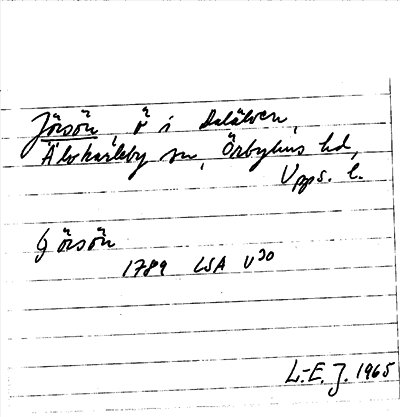 Jörsön, ö i Dalälven,
Älvkarleby sn, Örbyhus hd,
Upps. l.
Görsön
1789 LSA U30
L.-E. J. 1965